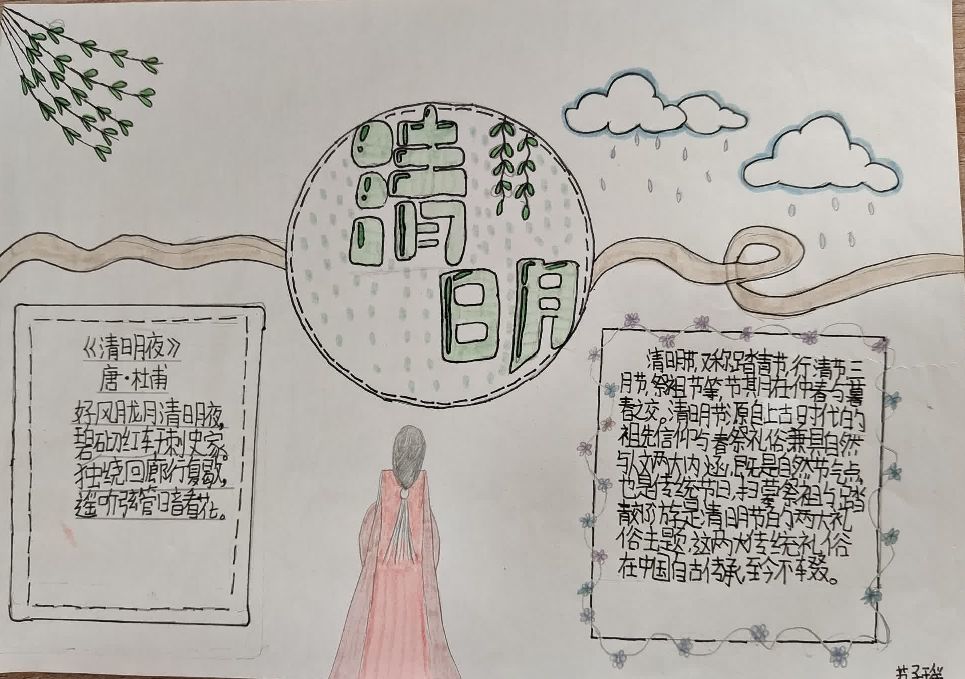 清
明
《清明夜》
唐·杜甫
好风胧月清明夜,
碧砌红轩刺史家。
独绕回廊行复歇,
遥听弦管暗看花。
清明节,又称踏青节,行清节三
月节,祭祖节等,节期在仲春与暮
春之交。清明节源自上古时代的
祖先信仰与春祭礼俗,兼具自然
与人文两大内涵,既是自然节气点,
也是传统节日,扫墓祭祖与踏
青郊游是清明节的两大礼
俗主题,这两大传统礼俗
在中国自古传承,至今不辍。